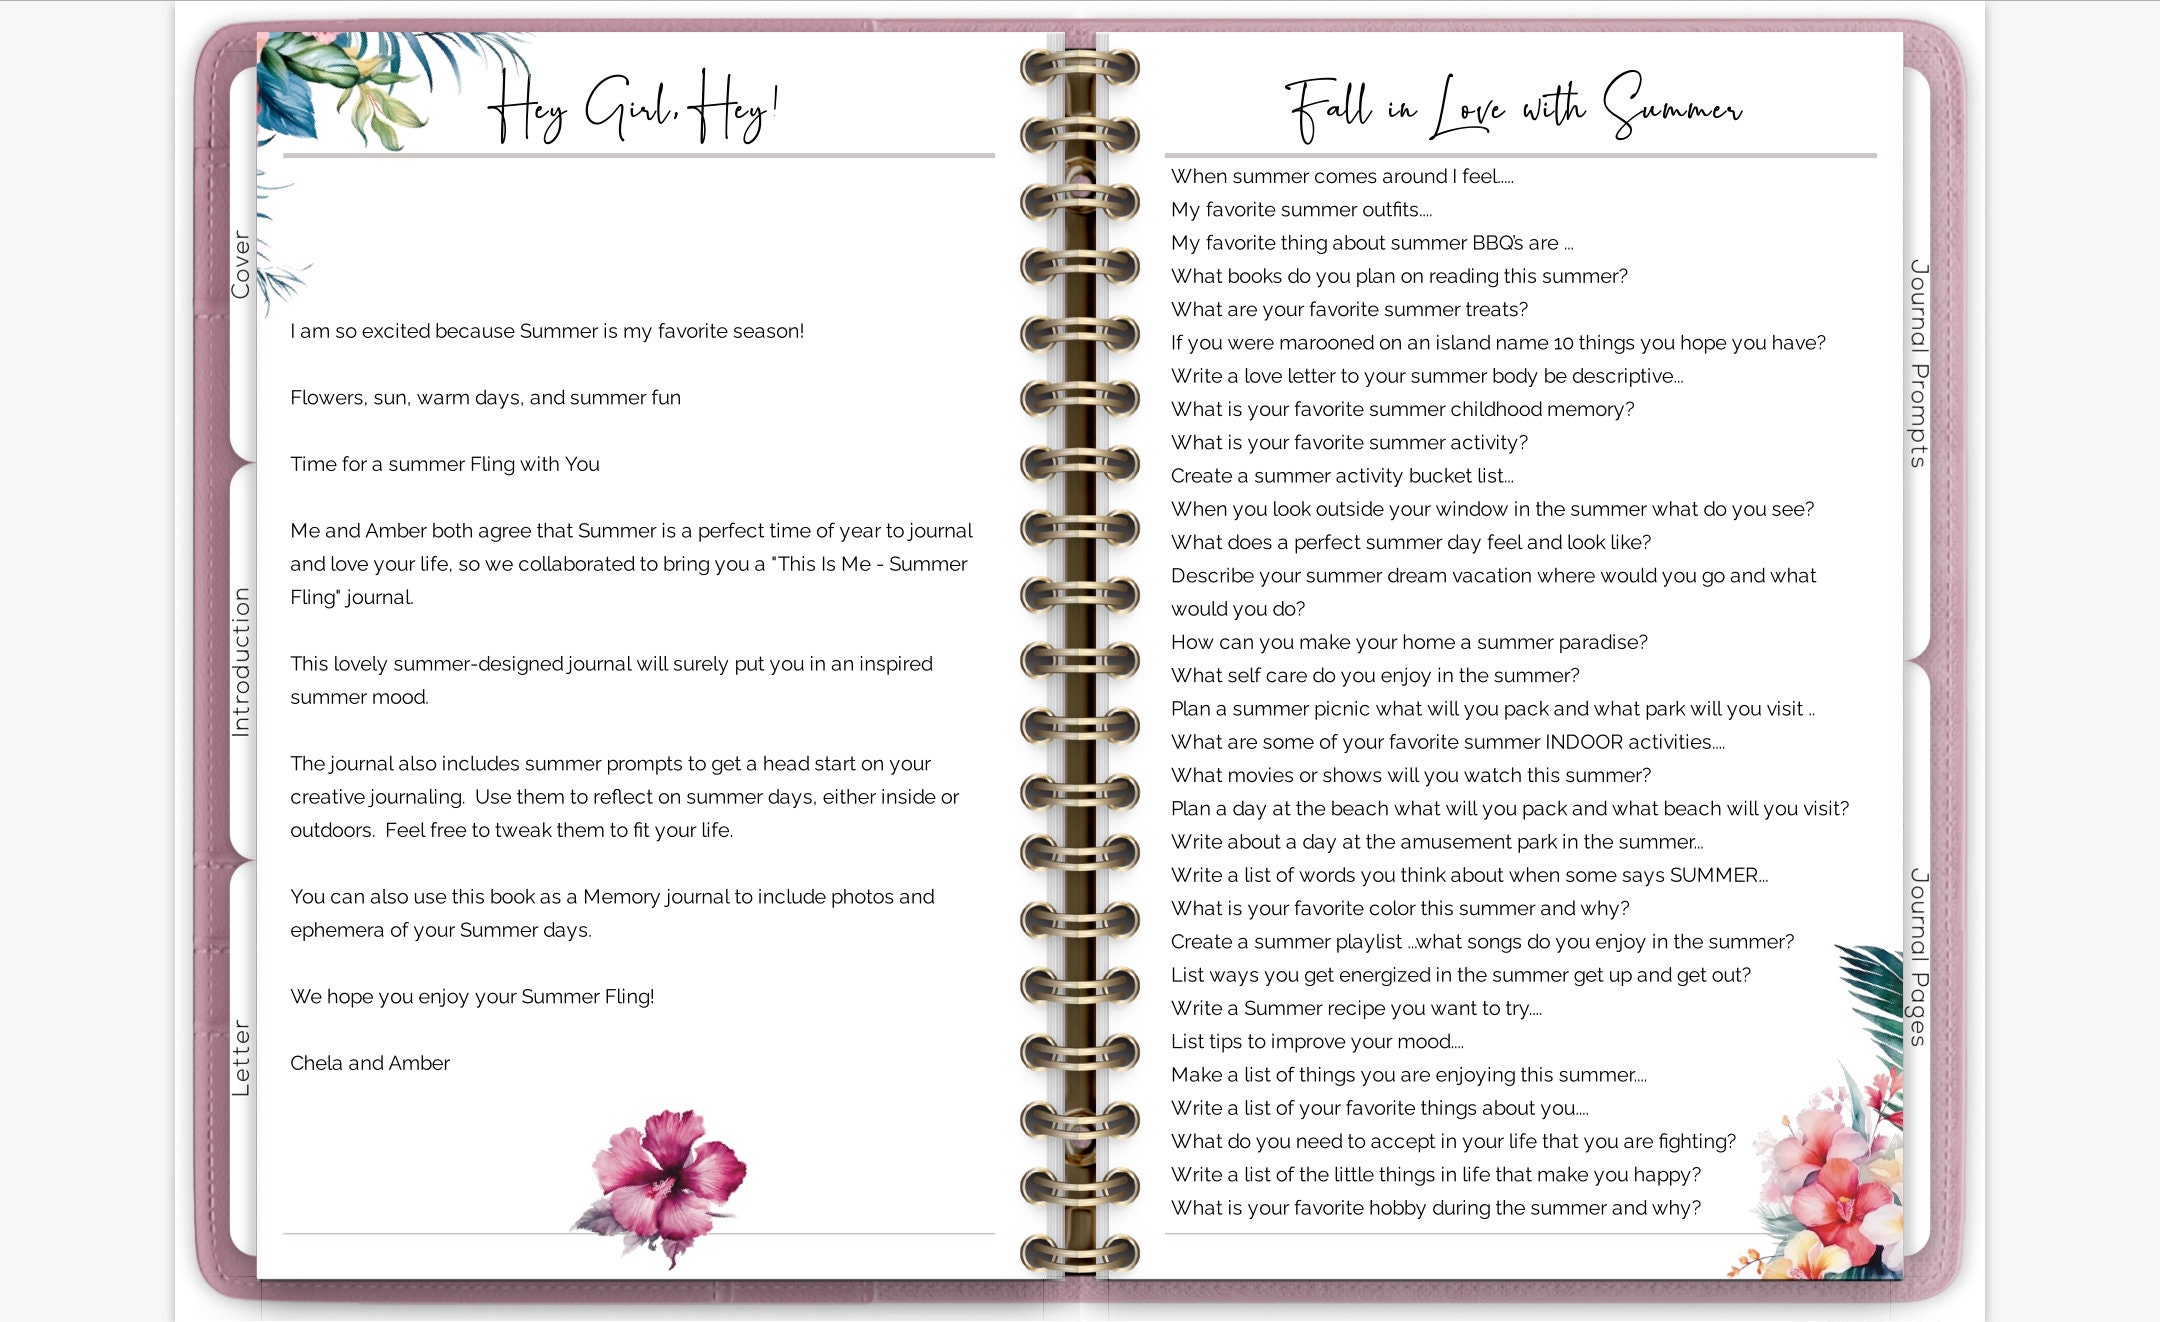 Hey Girl, Hey!
I am so excited because Summer is my favorite season!
Flowers, sun, warm days, and summer fun
Time for a summer Fling with You
Me and Amber both agree that Summer is a perfect time of year to journal
and love your life, so we collaborated to bring you a "This Is Me - Summer
Fling" journal.
This lovely summer-designed journal will surely put you in an inspired
summer mood.
The journal also includes summer prompts to get a head start on your
creative journaling.  Use them to reflect on summer days, either inside or
outdoors.  Feel free to tweak them to fit your life.
You can also use this book as a Memory journal to include photos and
ephemera of your Summer days.
We hope you enjoy your Summer Fling!
Chela and Amber
Cover
Introduction
Letter
Fall in Love with Summer
When summer comes around I feel.....
My favorite summer outfits....
My favorite thing about summer BBQ's are ...
What books do you plan on reading this summer?
What are your favorite summer treats?
If you were marooned on an island name 10 things you hope you have?
Write a love letter to your summer body be descriptive...
What is your favorite summer childhood memory?
What is your favorite summer activity?
Create a summer activity bucket list...
When you look outside your window in the summer what do you see?
What does a perfect summer day feel and look like?
Describe your summer dream vacation where would you go and what
would you do?
How can you make your home a summer paradise?
What self care do you enjoy in the summer?
Plan a summer picnic what will you pack and what park will you visit ..
What are some of your favorite summer INDOOR activities....
What movies or shows will you watch this summer?
Plan a day at the beach what will you pack and what beach will you visit?
Write about a day at the amusement park in the summer...
Write a list of words you think about when some says SUMMER...
What is your favorite color this summer and why?
Create a summer playlist ...what songs do you enjoy in the summer?
List ways you get energized in the summer get up and get out?
Write a Summer recipe you want to try....
List tips to improve your mood....
Make a list of things you are enjoying this summer....
Write a list of your favorite things about you....
What do you need to accept in your life that you are fighting?
Write a list of the little things in life that make you happy?
What is your favorite hobby during the summer and why?
Journal Prompts
Journal Pages